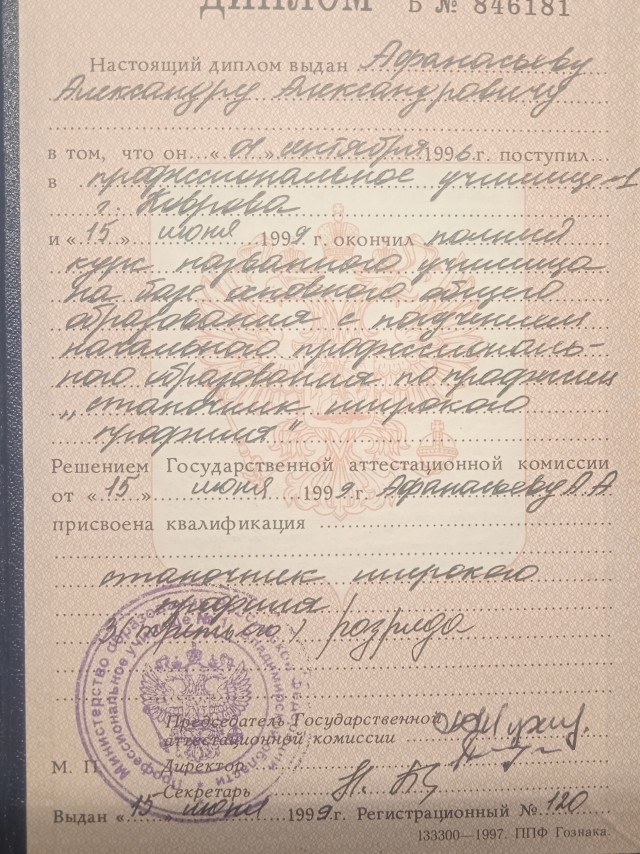 ДИПЛОМ Б № 846181
Настоящий диплом выдан Афанасьеву
Александру Александровичу
в том, что он «01» сентября 1996 г. поступил
в профессиональное училище-1
г. Коврова
и «15» июня 1999 г. окончил полный
курс названного училища
на базе основного общего
образования с получением
начального профессиональ-
ного образования по профессии
„станочник широкого
профиля"
Решением Государственной аттестационной комиссии
от «15» июня 1999 г. Афанасьеву А.А
присвоена квалификация
станочник широкого
профиля
3(третьего) разряда
Председатель Государственной
аттестационной комиссии
М. П. Директор
Секретарь
Выдан «15» июня 1999 г. Регистрационный № 120
133300—1997. ППФ Гознака.
Министерство образования
Профессиональное училище №